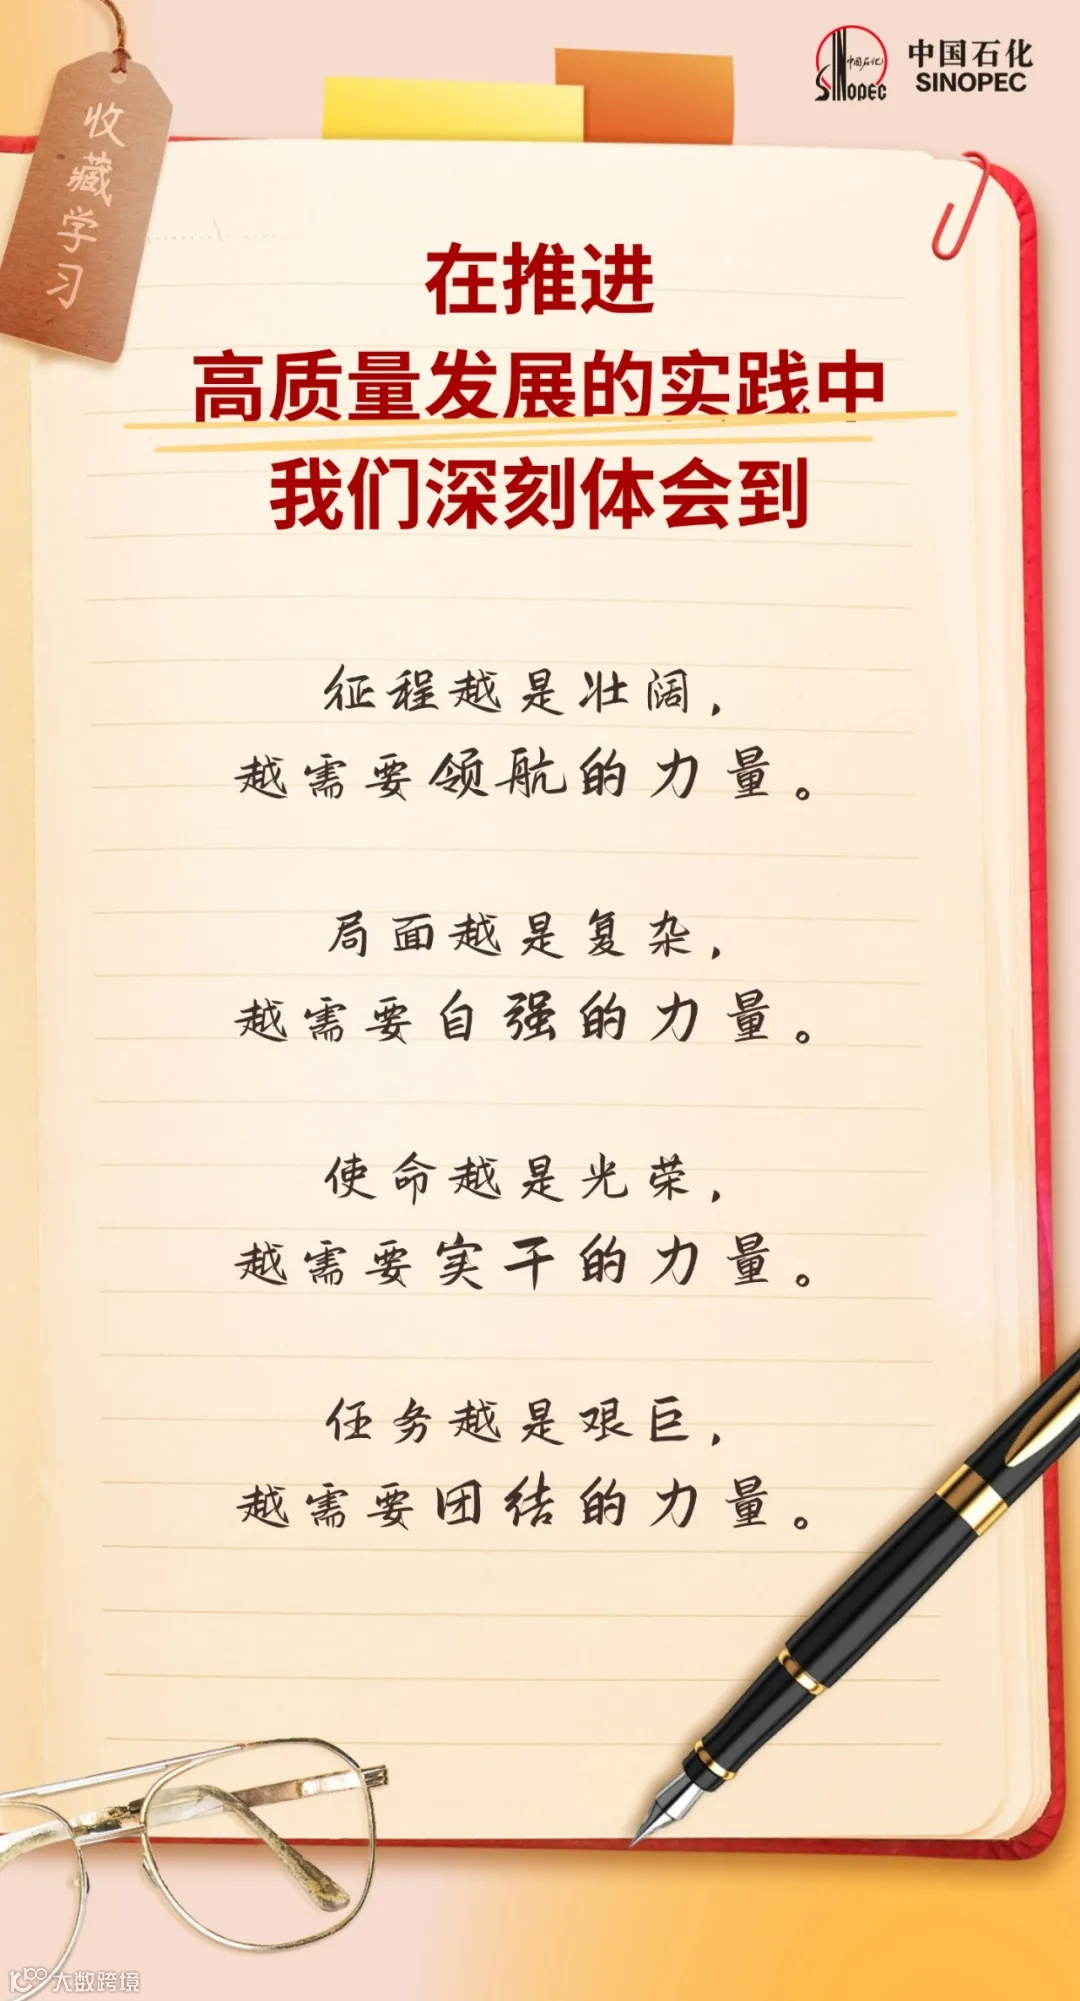 收藏学习
中国石化
SINOPEC
中国石化
SINOPEC
在推进
高质量发展的实践中
我们深刻体会到
征程越是壮阔，
越需要领航的力量。
局面越是复杂，
越需要自强的力量。
使命越是光荣，
越需要实干的力量。
任务越是艰巨，
越需要团结的力量。
大数跨境